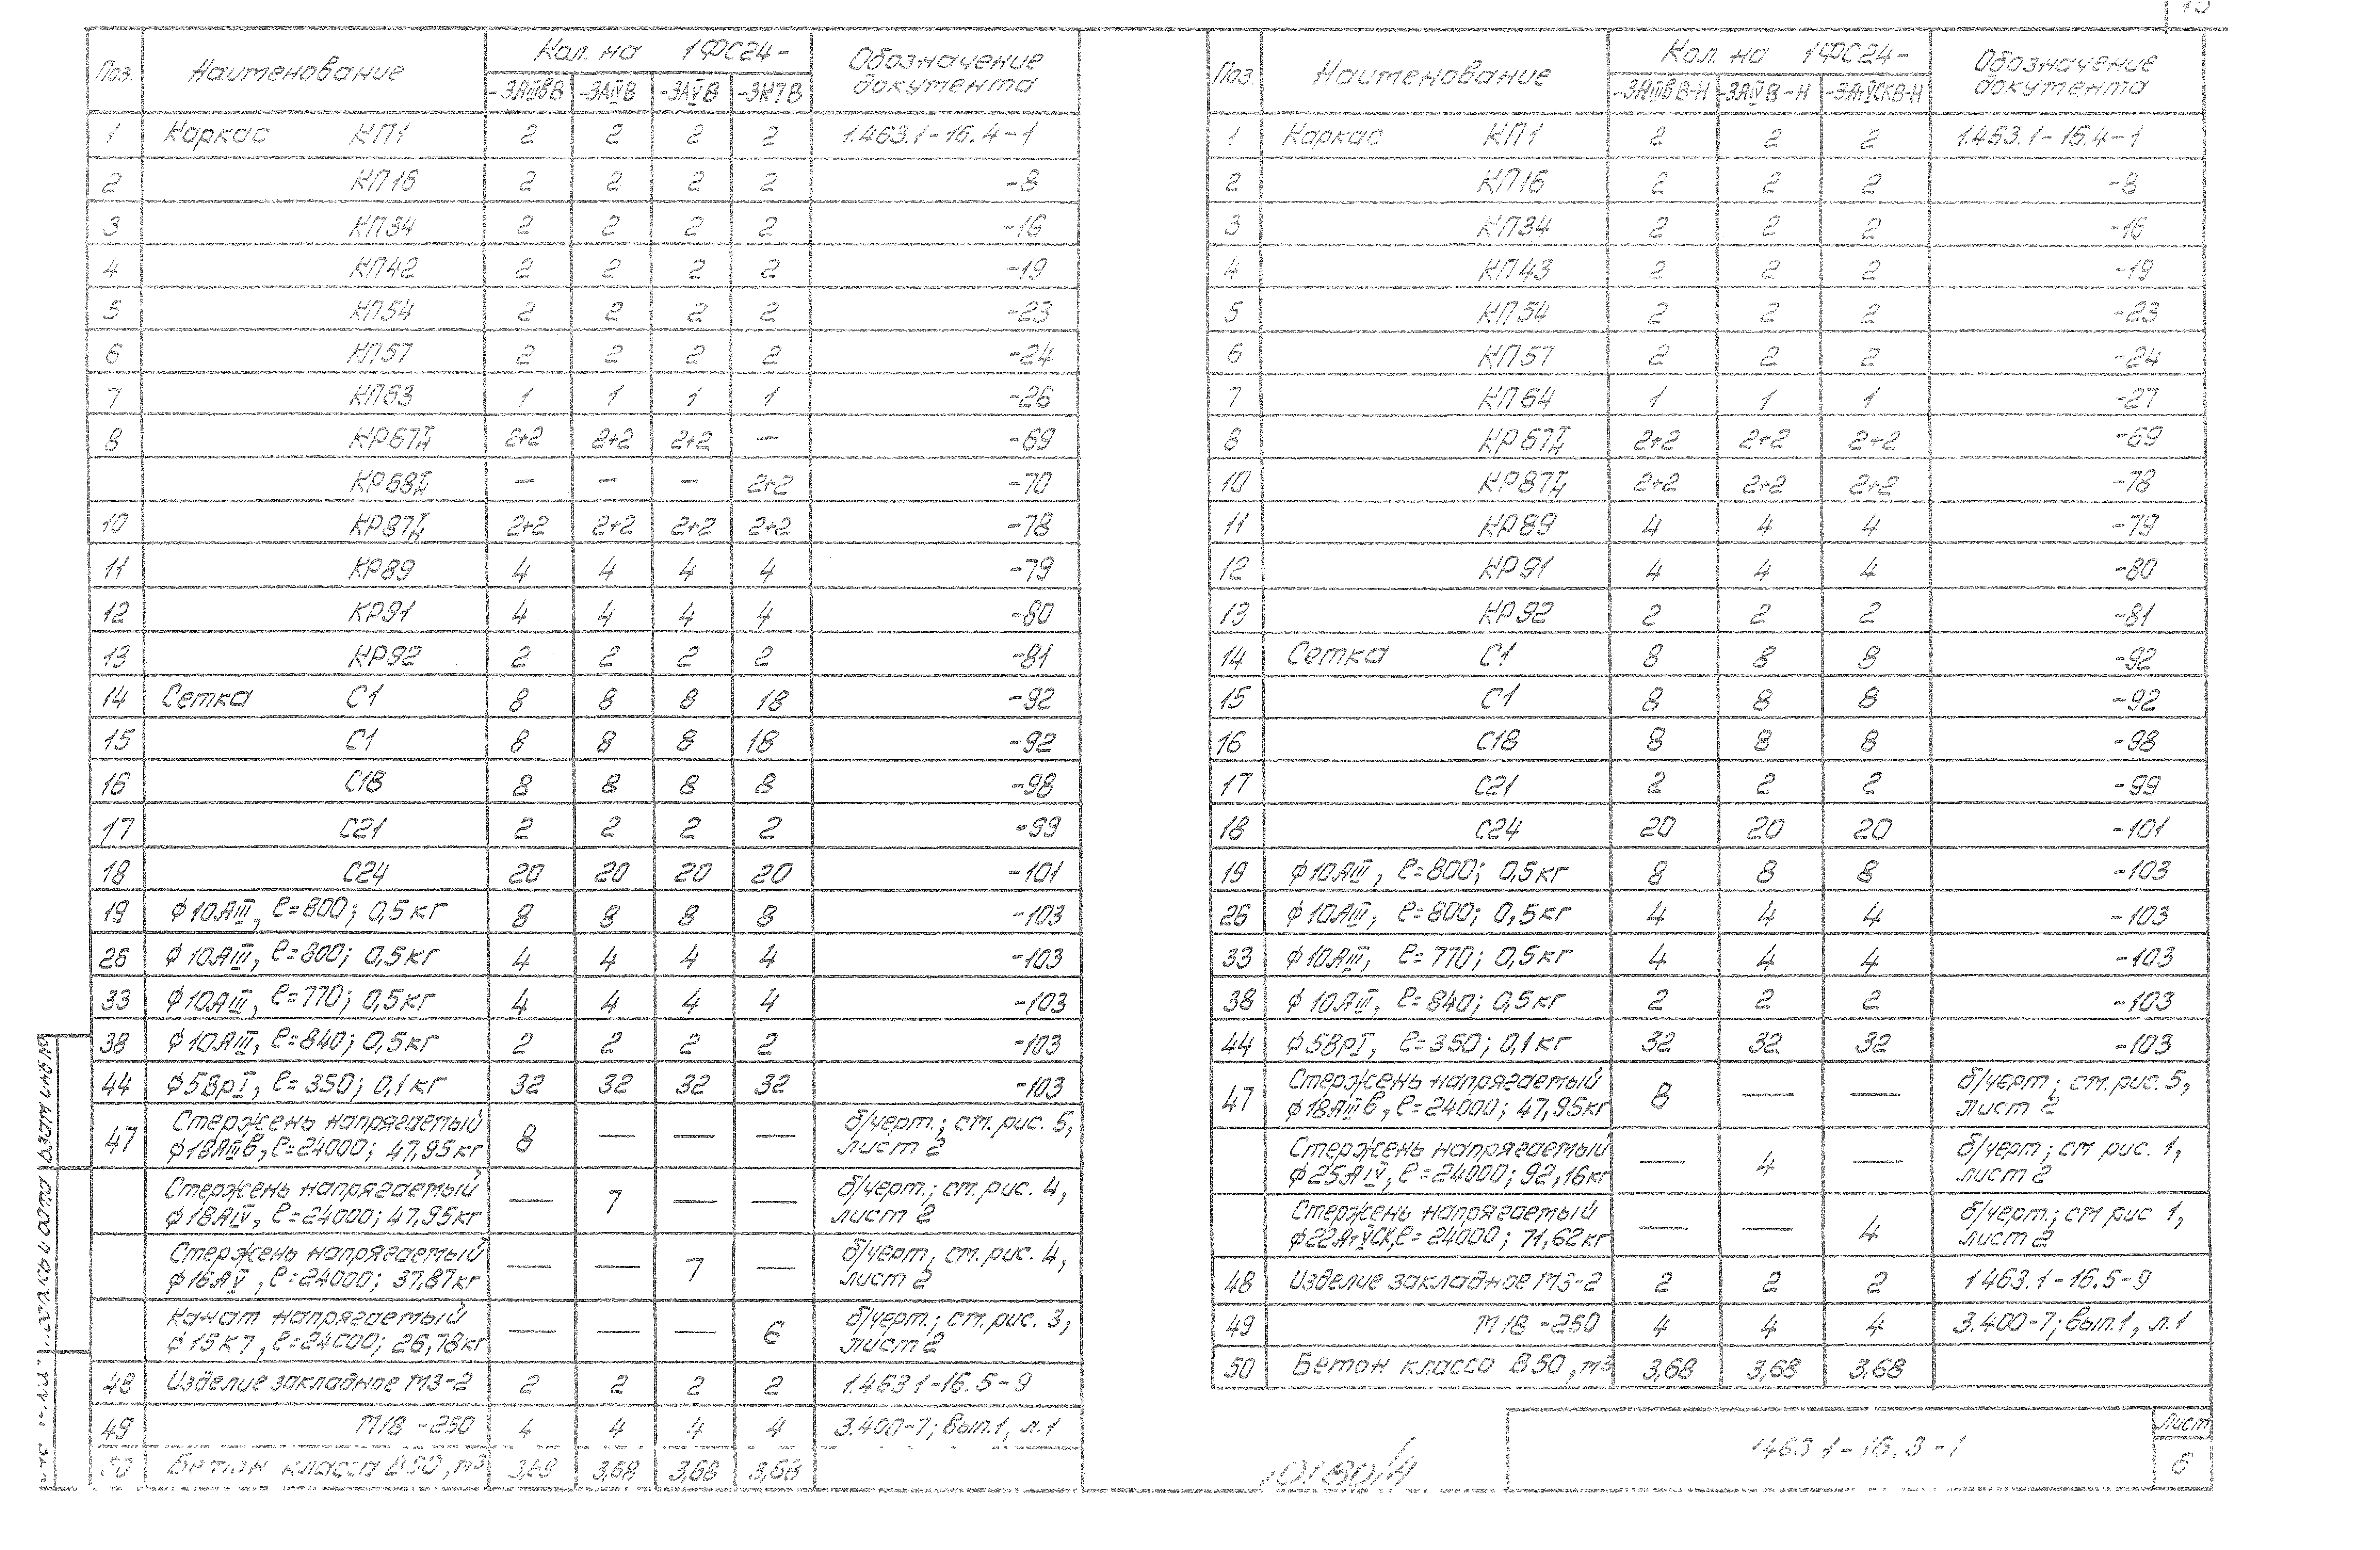 Поз. Наименование Кол. на 1ФС24- Обозначение документа
-3АIIIвВ -3АIVВ -3АVВ -3К7В
1 Каркас КП1 2 2 2 2 1.463.1-16.4-1
2 КП16 2 2 2 2 -8
3 КП34 2 2 2 2 -16
4 КП42 2 2 2 2 -19
5 КП54 2 2 2 2 -23
6 КП57 2 2 2 2 -24
7 КП63 1 1 1 1 -26
8 КР67Т/Н 2+2 2+2 2+2 — -69
КР68Т/Н — — — 2+2 -70
10 КР87Т/Н 2+2 2+2 2+2 2+2 -78
11 КР89 4 4 4 4 -79
12 КР91 4 4 4 4 -80
13 КР92 2 2 2 2 -81
14 Сетка С1 8 8 8 18 -92
15 С1 8 8 8 18 -92
16 С18 8 8 8 8 -98
17 С21 2 2 2 2 -99
18 С24 20 20 20 20 -101
19 ϕ10АIII, ℓ=800; 0,5кг 8 8 8 8 -103
26 ϕ10АIII, ℓ=800; 0,5кг 4 4 4 4 -103
33 ϕ10АIII, ℓ=770; 0,5кг 4 4 4 4 -103
38 ϕ10АIII, ℓ=840; 0,5кг 2 2 2 2 -103
44 ϕ5ВрI, ℓ=350; 0,1кг 32 32 32 32 -103
47 Стержень напрягаемый ϕ18АIIIв, ℓ=24000; 47,95кг 8 — — — б/черт.; см. рис. 5, лист 2
Стержень напрягаемый ϕ18АIV, ℓ=24000; 47,95кг — 7 — — б/черт.; см. рис. 4, лист 2
Стержень напрягаемый ϕ16АV, ℓ=24000; 37,87кг — — 7 — б/черт, см. рис. 4, лист 2
Канат напрягаемый ϕ15К7, ℓ=24000; 26,78кг — — — 6 б/черт.; см. рис. 3, лист 2
48 Изделие закладное М3-2 2 2 2 2 1.463 1-16.5-9
49 М18-250 4 4 4 4 3.400-7; вып.1, л.1
50 Бетон класса В50, м³ 3,68 3,68 3,68 3,68
Поз. Наименование Кол. на 1ФС24- Обозначение документа
-3АIIIвВ-Н -3АIVВ-Н -3АтVСКВ-Н
1 Каркас КП1 2 2 2 1.463.1-16.4-1
2 КП16 2 2 2 -8
3 КП34 2 2 2 -16
4 КП43 2 2 2 -19
5 КП54 2 2 2 -23
6 КП57 2 2 2 -24
7 КП64 1 1 1 -27
8 КР67Т/Н 2+2 2+2 2+2 -69
10 КР87Т/Н 2+2 2+2 2+2 -78
11 КР89 4 4 4 -79
12 КР91 4 4 4 -80
13 КР92 2 2 2 -81
14 Сетка С1 8 8 8 -92
15 С1 8 8 8 -92
16 С18 8 8 8 -98
17 С21 2 2 2 -99
18 С24 20 20 20 -101
19 ϕ10АIII, ℓ=800; 0,5кг 8 8 8 -103
26 ϕ10АIII, ℓ=800; 0,5кг 4 4 4 -103
33 ϕ10АIII, ℓ=770; 0,5кг 4 4 4 -103
38 ϕ10АIII, ℓ=840; 0,5кг 2 2 2 -103
44 ϕ5ВрI, ℓ=350; 0,1кг 32 32 32 -103
47 Стержень напрягаемый ϕ18АIIIв, ℓ=24000; 47,95кг 8 — — б/черт; см. рис. 5, лист 2
Стержень напрягаемый ϕ25АIV, ℓ=24000; 92,16кг — 4 — б/черт; см рис. 1, лист 2
Стержень напрягаемый ϕ22АтVСК, ℓ=24000; 71,62кг — — 4 б/черт.; см рис 1, лист 2
48 Изделие закладное М3-2 2 2 2 1463.1-16.5-9
49 М18-250 4 4 4 3.400-7; вып.1, л.1
50 Бетон класса В50, м³ 3,68 3,68 3,68
1463 1-16.3-1
Лист
6